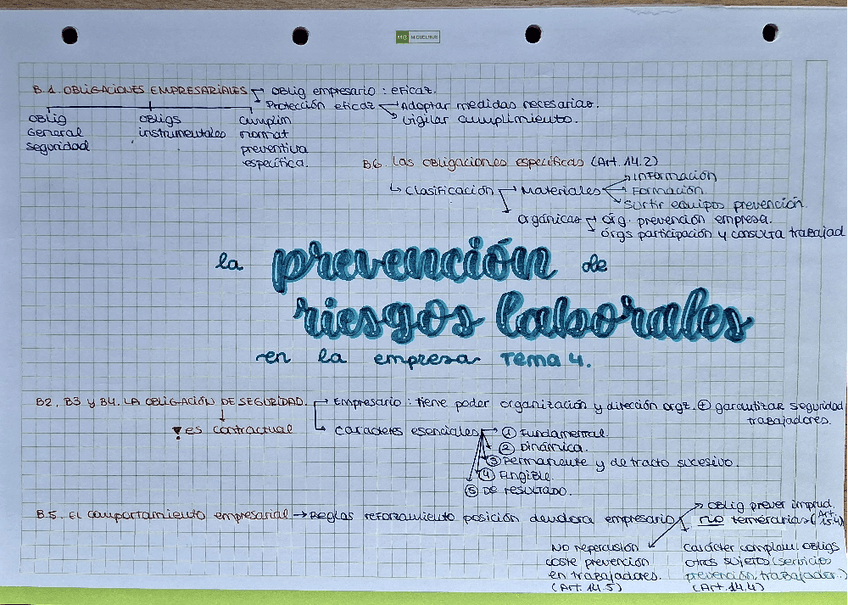 B.1. OBLIGACIONES EMPRESARIALES → Oblig empresario : eficaz.
Protección eficaz → Adoptar medidas necesarias.
→ Vigilar cumplimiento.
Oblig General seguridad
Obligs instrumentales
Cumplim normat preventiva específica.
B6. Las obligaciones específicas (Art. 14.2)
↳ Clasificación → Materiales → Información
→ Formación.
→ Surtir equipos prevención.
→ Orgánicas → Órg. prevención empresa.
→ Órgs participación y consulta trabajad
la prevención de
riesgos laborales
en la empresa Tema 4.
B2. B3 y B4. LA OBLIGACIÓN DE SEGURIDAD. → Empresario : tiene poder organización y dirección orgz. ⊕ garantizar seguridad
trabajadores.
! es contractual
→ Caracteres esenciales → ① Fundamental.
② Dinámica.
③ Permanente y de tracto sucesivo.
④ Fungible.
⑤ DE resultado.
B.5. El comportamiento empresarial → Reglas reforzamiento posición deudora empresario → Oblig prever imprud
no temerarias (Art. 15.4)
No repercusión
coste prevención
en trabajadores.
(Art. 14.5)
Carácter complem. obligs
otros sujeto (servicio
prevención, trabajador..)
(Art. 14.4)